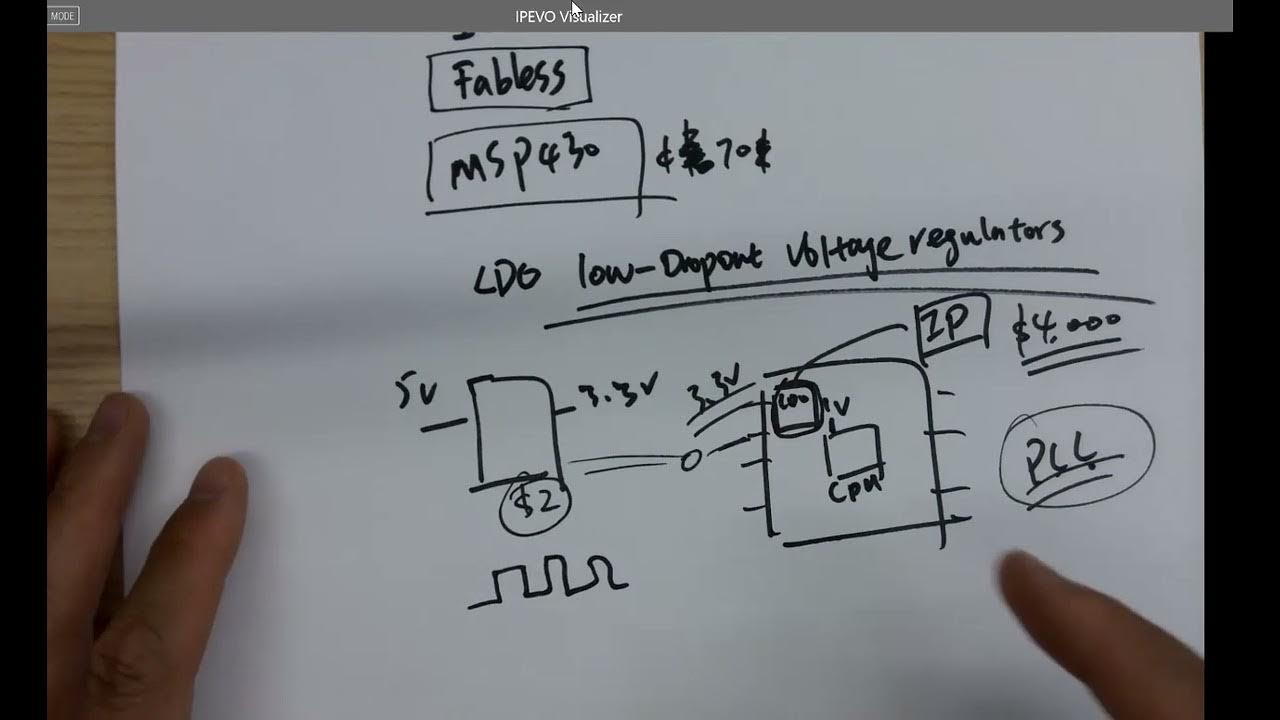 MODE
IPEVO Visualizer
Fabless
MSP430 70¢
LDO low-Dropout Voltage regulators
IP $4.000
5V 3.3V 3.3V LDO 1V
CPU
PLL
$2